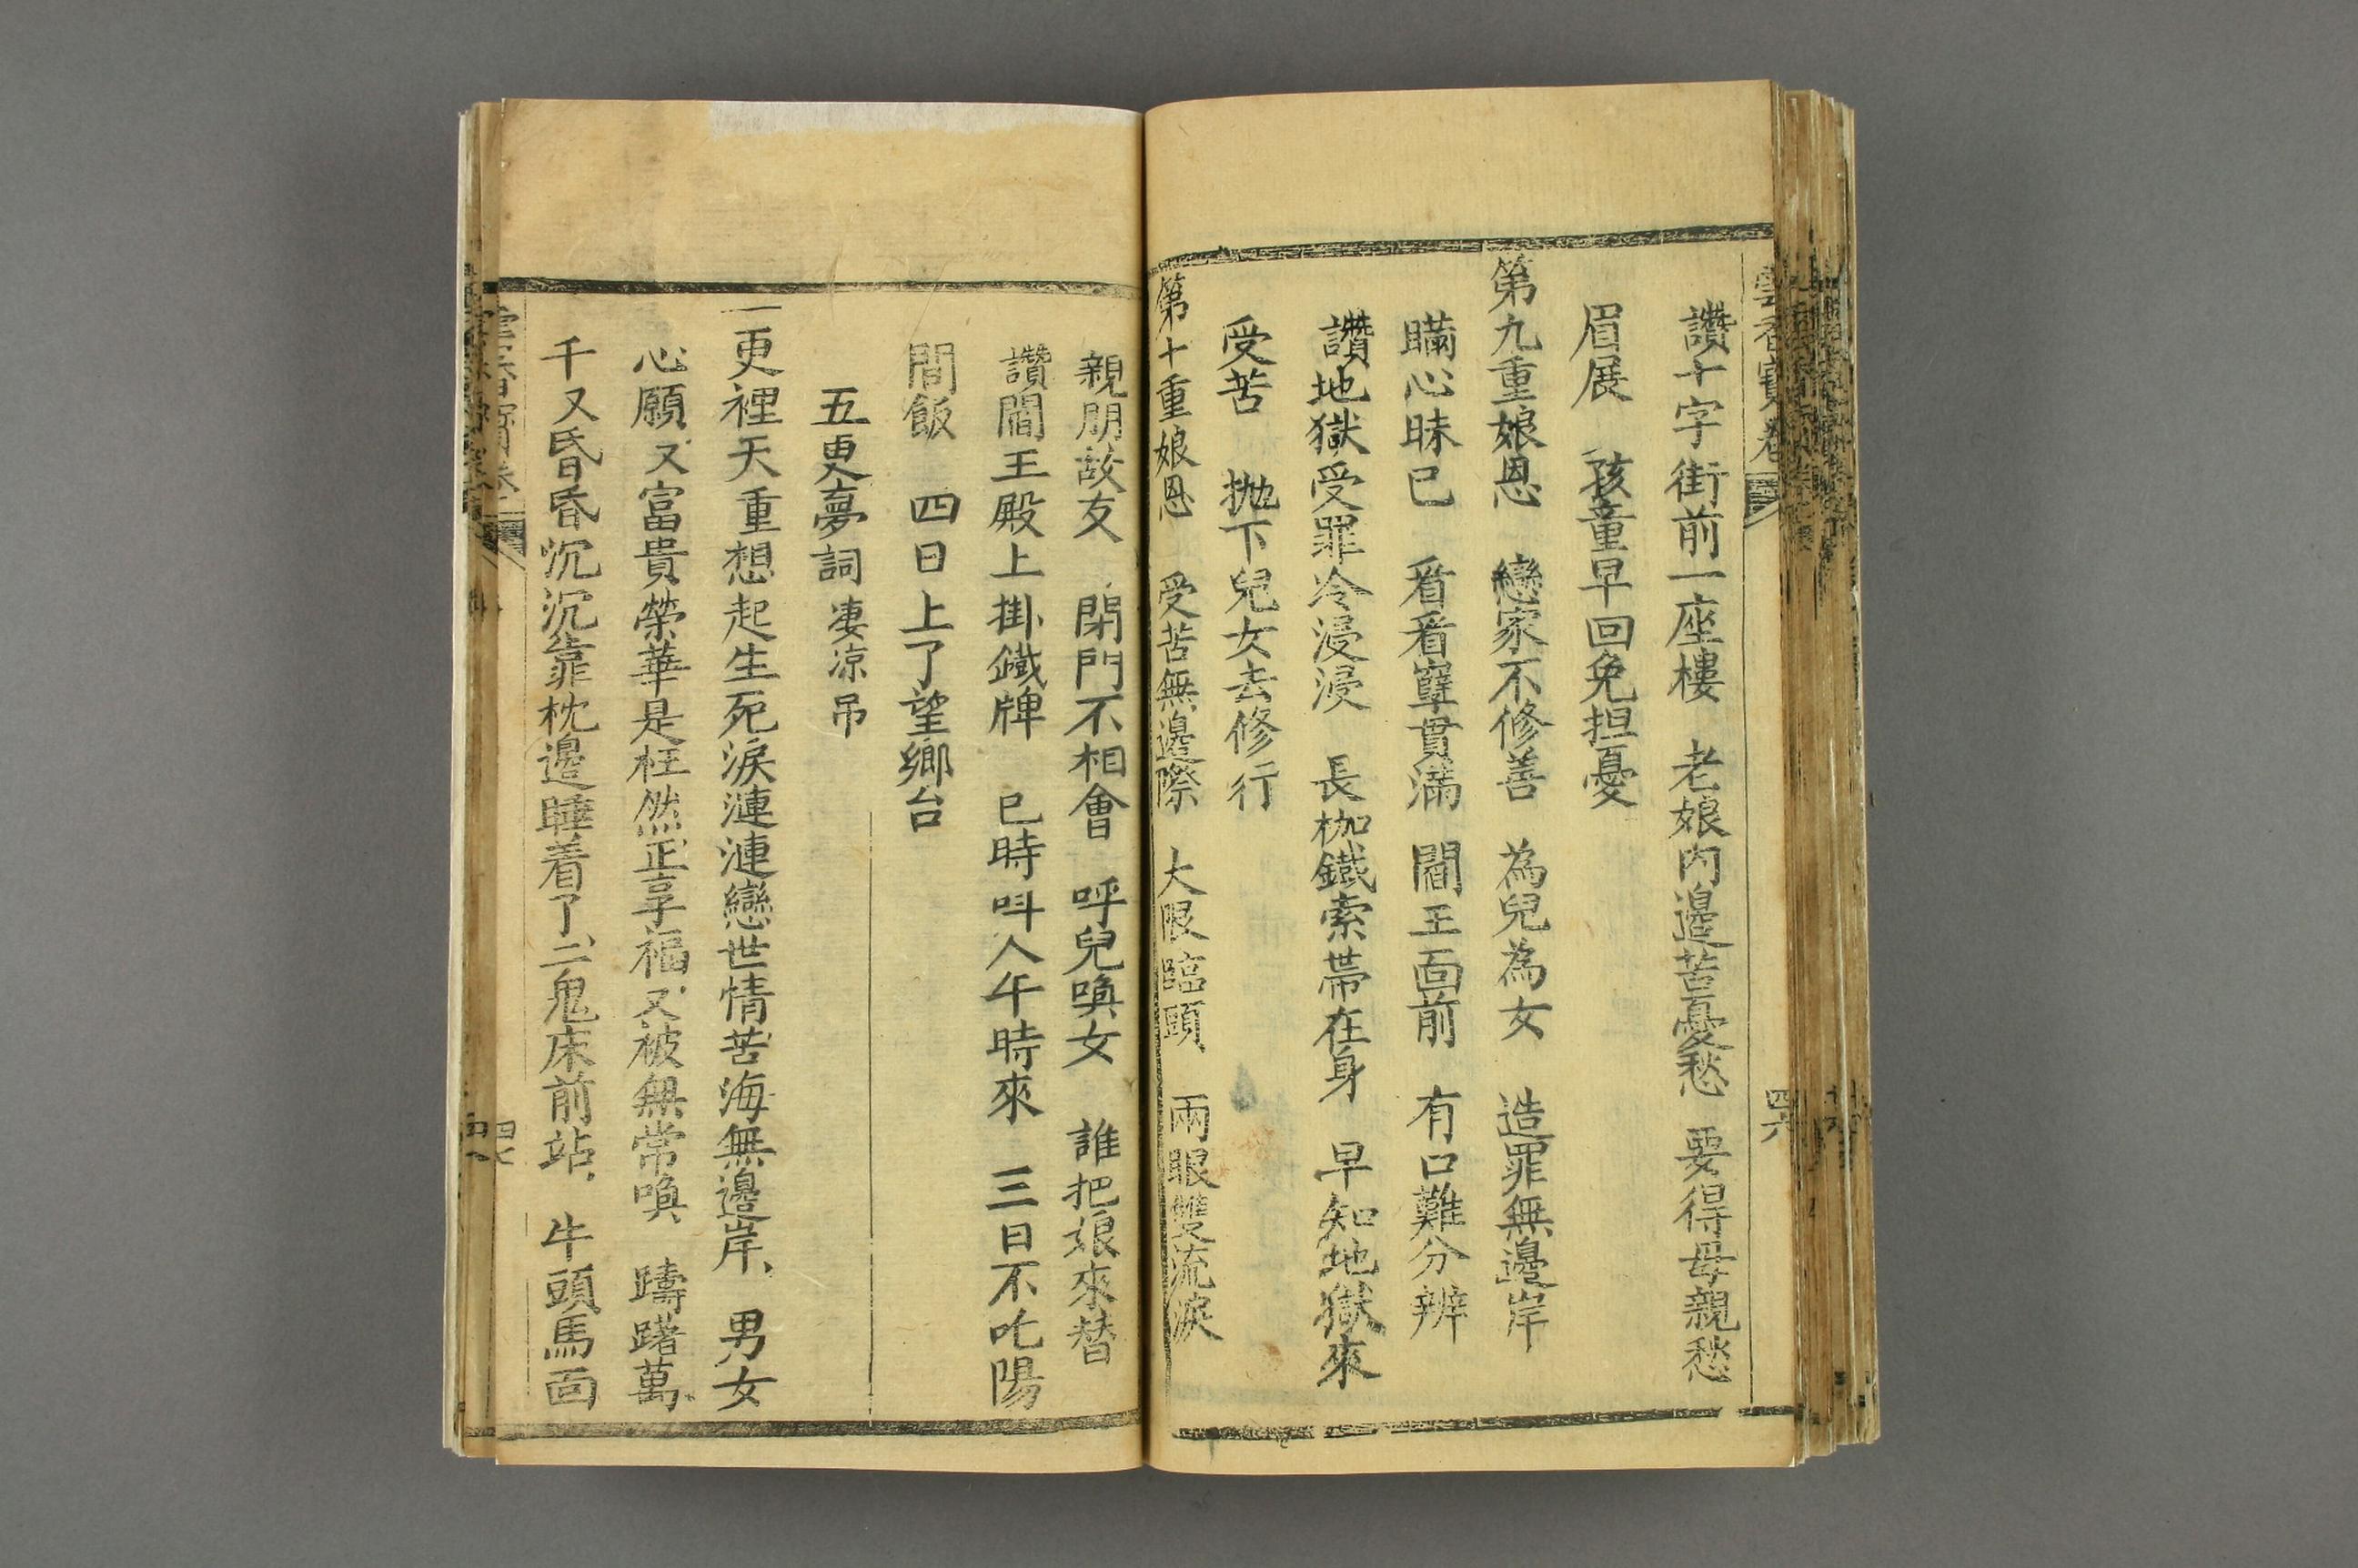 雲香寶卷 四六
讚十字街前一座樓 老娘內邊苦憂愁 要得母親愁
眉展 孩童早回免担憂
第九重娘恩 戀家不修善 為兒為女 造罪無邊岸
瞞心昧己 看看孽貫滿 閻王面前 有口難分辨
讚地獄受罪冷浸浸 長枷鐵索帶在身 早知地獄來
受苦 拋下兒女去修行
第十重娘恩 受苦無邊際 大限臨頭 兩眼雙流淚
親朋故友 閉門不相會 呼兒喚女 誰把娘來替
讚閻王殿上掛鐵牌 巳時呌人午時來 三日不吃陽
間飯 四日上了望鄉台
五更夢詞 凄凉吊
一更裡天重想起生死淚漣漣戀世情苦海無邊岸、男女
心願又富貴榮華是枉然正享福又被無常喚 躊躇萬
千又昏昏沉沉靠枕邊睡着了二鬼床前站、牛頭馬面
四七